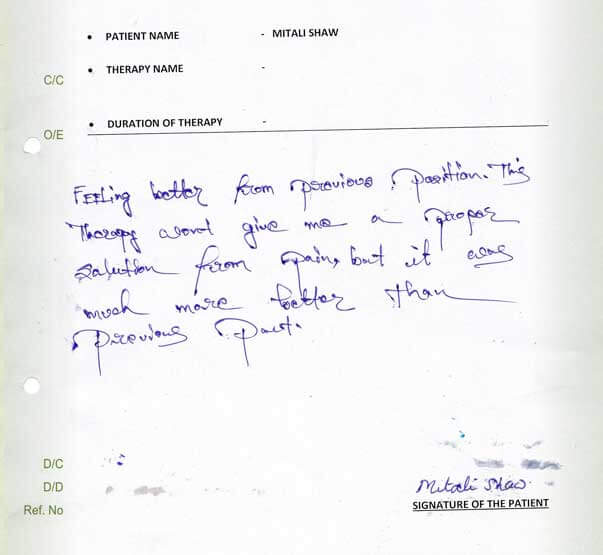 • PATIENT NAME - MITALI SHAW
C/C • THERAPY NAME -
O/E • DURATION OF THERAPY -
FEELing better from previous position. This
Therapy give me a proper
solution from pain, but it was
much more better than
previous past.
D/C
D/D Mitali Shaw.
Ref. No SIGNATURE OF THE PATIENT